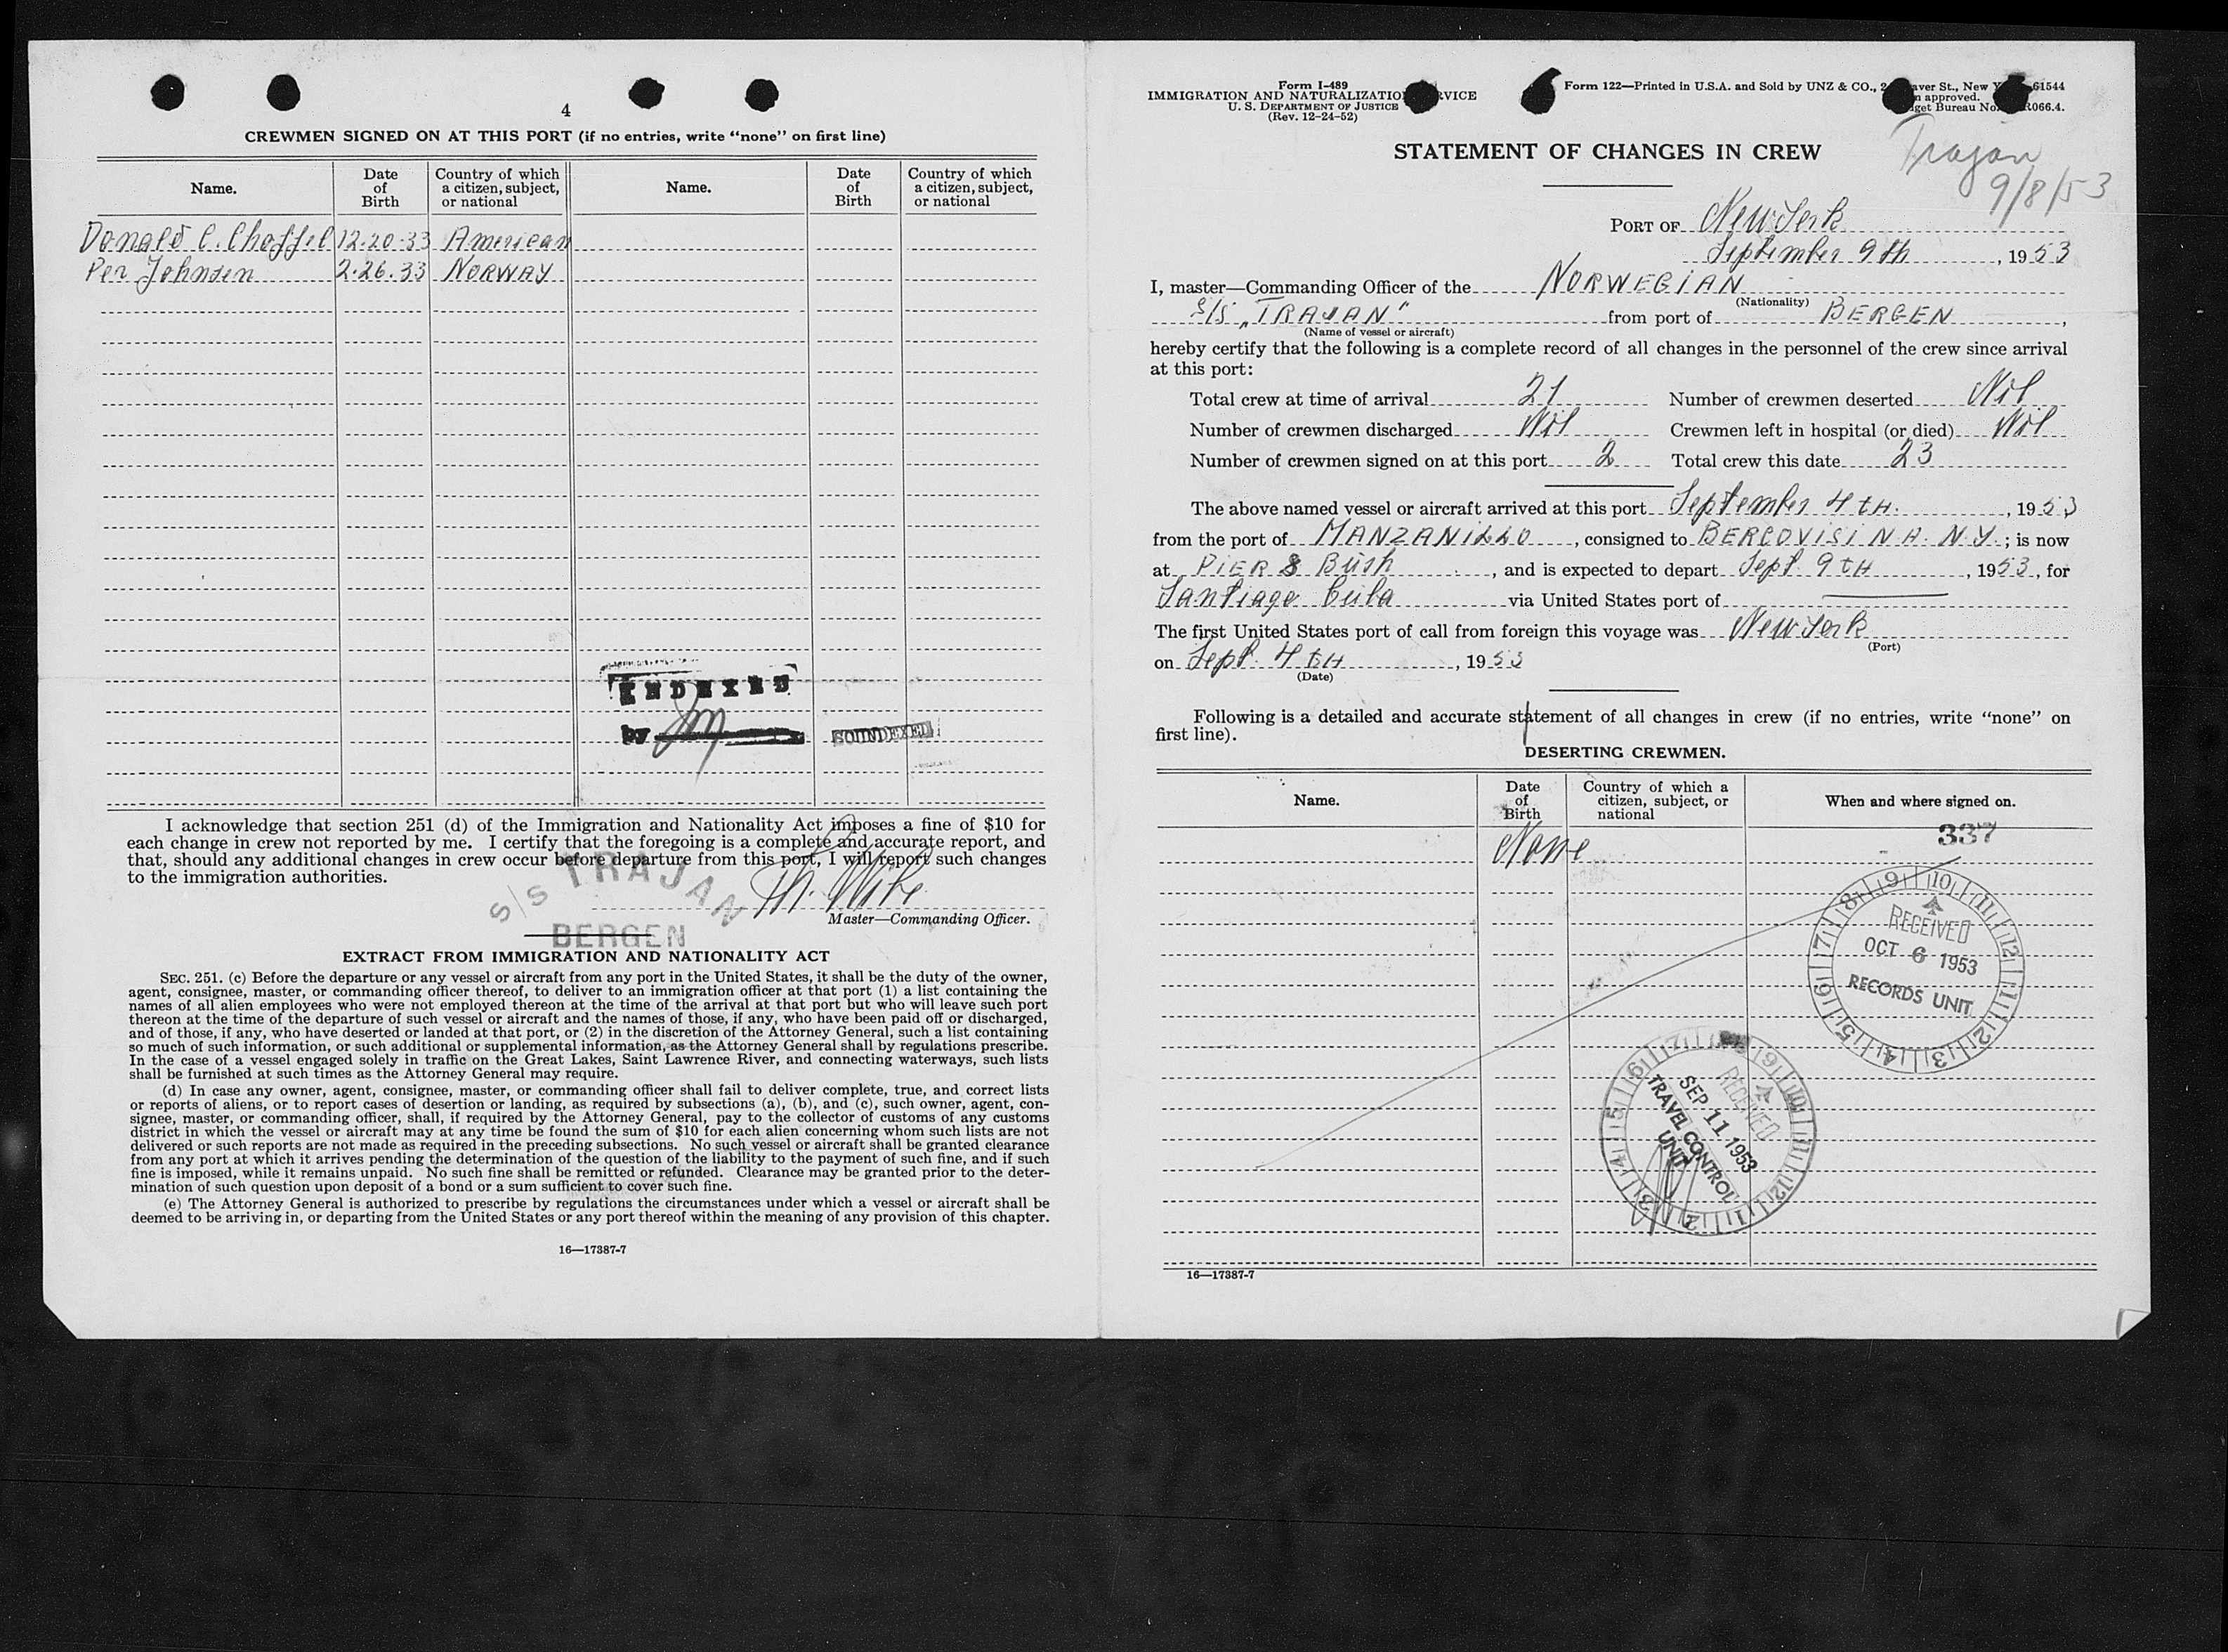 4
CREWMEN SIGNED ON AT THIS PORT (if no entries, write “none” on first line)
Name. Date of Birth Country of which a citizen, subject, or national Name. Date of Birth Country of which a citizen, subject, or national
Donald C. Choffel 12.20.33 American
Per Johnsen 2.26.33 NORWAY
INDEXED
by
SOUNDEXED
I acknowledge that section 251 (d) of the Immigration and Nationality Act imposes a fine of $10 for
each change in crew not reported by me. I certify that the foregoing is a complete and accurate report, and
that, should any additional changes in crew occur before departure from this port, I will report such changes
to the immigration authorities.
S/S TRAJAN
BERGEN
Master—Commanding Officer.
EXTRACT FROM IMMIGRATION AND NATIONALITY ACT
SEC. 251. (c) Before the departure or any vessel or aircraft from any port in the United States, it shall be the duty of the owner,
agent, consignee, master, or commanding officer thereof, to deliver to an immigration officer at that port (1) a list containing the
names of all alien employees who were not employed thereon at the time of the arrival at that port but who will leave such port
thereon at the time of the departure of such vessel or aircraft and the names of those, if any, who have been paid off or discharged,
and of those, if any, who have deserted or landed at that port, or (2) in the discretion of the Attorney General, such a list containing
so much of such information, or such additional or supplemental information, as the Attorney General shall by regulations prescribe.
In the case of a vessel engaged solely in traffic on the Great Lakes, Saint Lawrence River, and connecting waterways, such lists
shall be furnished at such times as the Attorney General may require.
(d) In case any owner, agent, consignee, master, or commanding officer shall fail to deliver complete, true, and correct lists
or reports of aliens, or to report cases of desertion or landing, as required by subsections (a), (b), and (c), such owner, agent, con-
signee, master, or commanding officer, shall, if required by the Attorney General, pay to the collector of customs of any customs
district in which the vessel or aircraft may at any time be found the sum of $10 for each alien concerning whom such lists are not
delivered or such reports are not made as required in the preceding subsections. No such vessel or aircraft shall be granted clearance
from any port at which it arrives pending the determination of the question of the liability to the payment of such fine, and if such
fine is imposed, while it remains unpaid. No such fine shall be remitted or refunded. Clearance may be granted prior to the deter-
mination of such question upon deposit of a bond or a sum sufficient to cover such fine.
(e) The Attorney General is authorized to prescribe by regulations the circumstances under which a vessel or aircraft shall be
deemed to be arriving in, or departing from the United States or any port thereof within the meaning of any provision of this chapter.
16—17387-7
Form I-489
IMMIGRATION AND NATURALIZATIO RVICE
U. S. DEPARTMENT OF JUSTICE
(Rev. 12-24-52)
Form 122—Printed in U.S.A. and Sold by UNZ & CO., 2 aver St., New Y 61544
n approved.
get Bureau No. R066.4.
STATEMENT OF CHANGES IN CREW
Trajan
9/8/53
PORT OF New York
September 9th, 1953
I, master—Commanding Officer of the NORWEGIAN
(Nationality)
S/S „TRAJAN" from port of BERGEN,
(Name of vessel or aircraft)
hereby certify that the following is a complete record of all changes in the personnel of the crew since arrival
at this port:
Total crew at time of arrival 21 Number of crewmen deserted Nil
Number of crewmen discharged Nil Crewmen left in hospital (or died) Nil
Number of crewmen signed on at this port 2 Total crew this date 23
The above named vessel or aircraft arrived at this port September 4TH., 1953
from the port of MANZANILLO, consigned to BERCOVISI N.A. N.Y.; is now
at PIER 8 Bush, and is expected to depart Sept. 9TH, 1953, for
Santiago Cuba via United States port of
The first United States port of call from foreign this voyage was New York
(Port)
on Sept. 4TH, 1953
(Date)
Following is a detailed and accurate statement of all changes in crew (if no entries, write “none” on
first line).
DESERTING CREWMEN.
Name. Date of Birth Country of which a citizen, subject, or national When and where signed on.
337
None
RECEIVED
OCT 6 1953
RECORDS UNIT
RECEIVED
SEP 11 1953
TRAVEL CONTROL
UNIT
16—17387-7